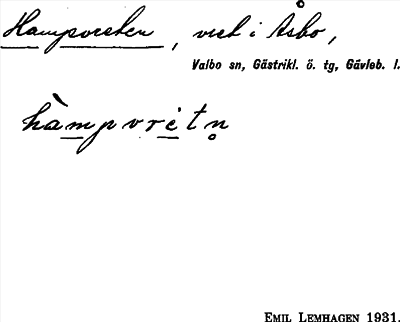 Hampvreten, vret i Åsbo,
Valbo sn, Gästrikl. ö. tg, Gävleb. l.
hàmpvretn̥
EMIL LEMHAGEN 1931.